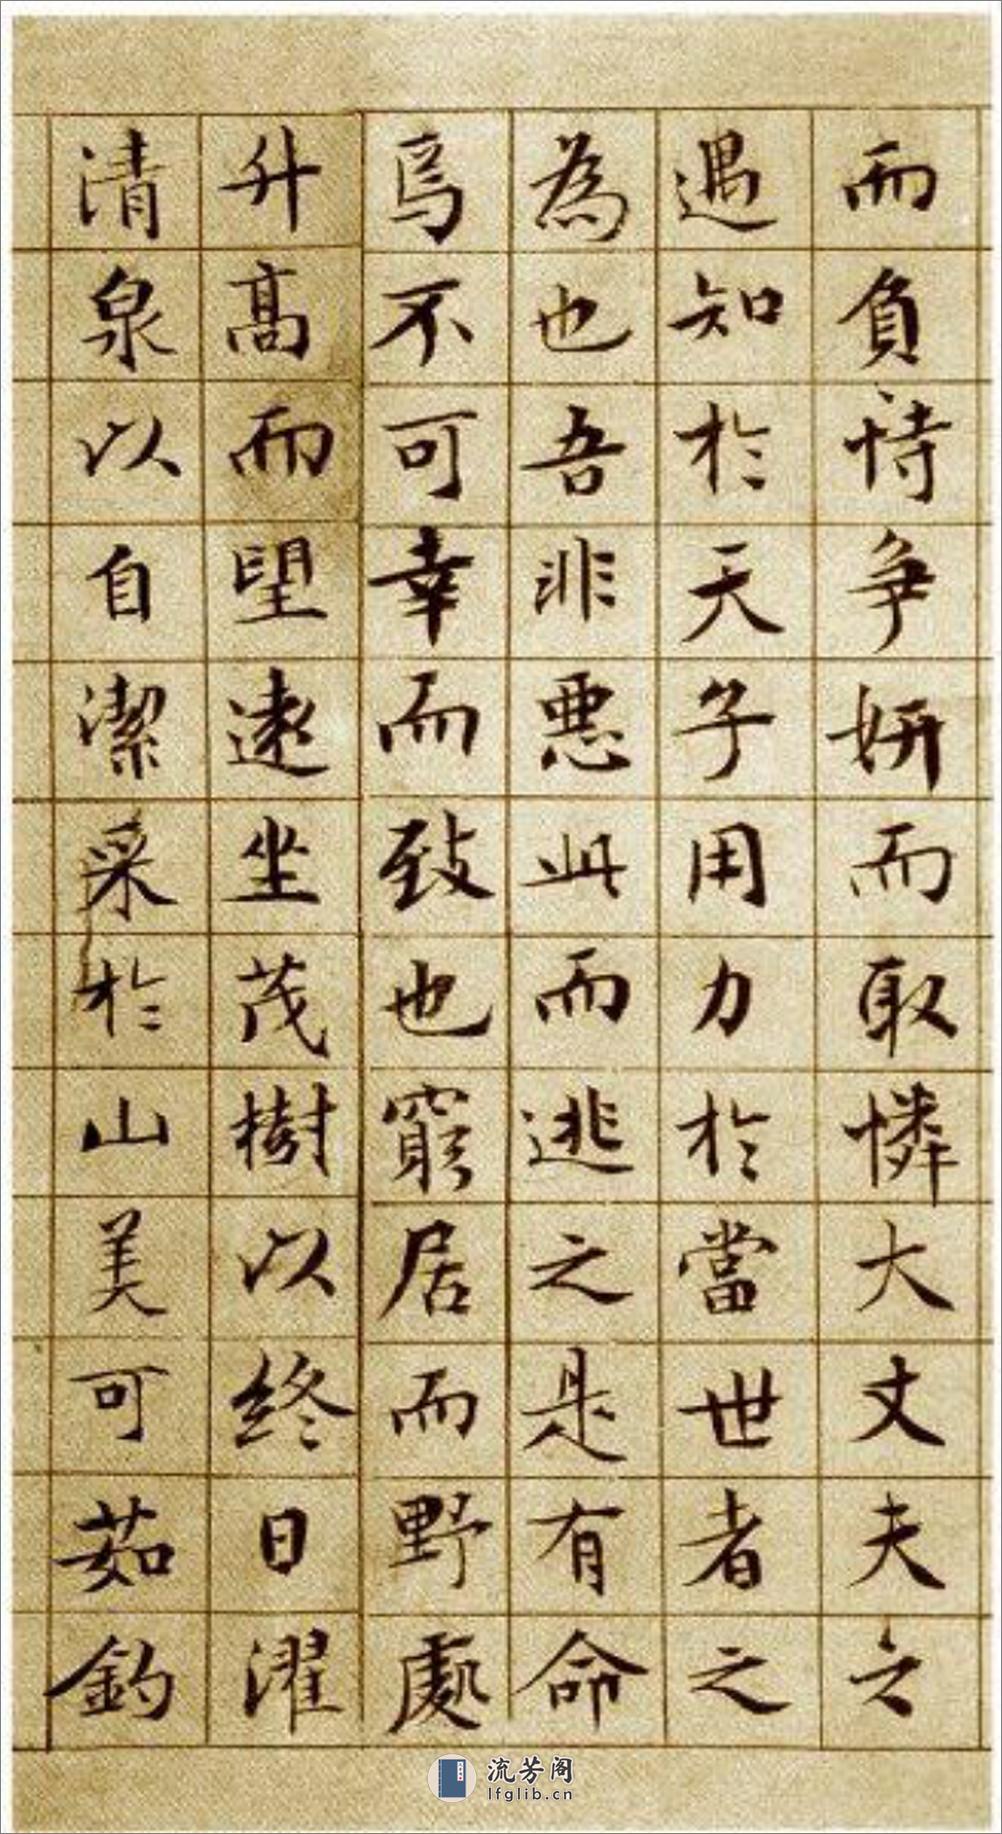 而負恃爭妍而取憐大丈夫之
遇知於天子用力於當世者之
為也吾非惡此而逃之是有命
焉不可幸而致也窮居而野處
升高而望遠坐茂樹以終日濯
清泉以自潔采於山美可茹釣
流芳阁
lfglib.cn